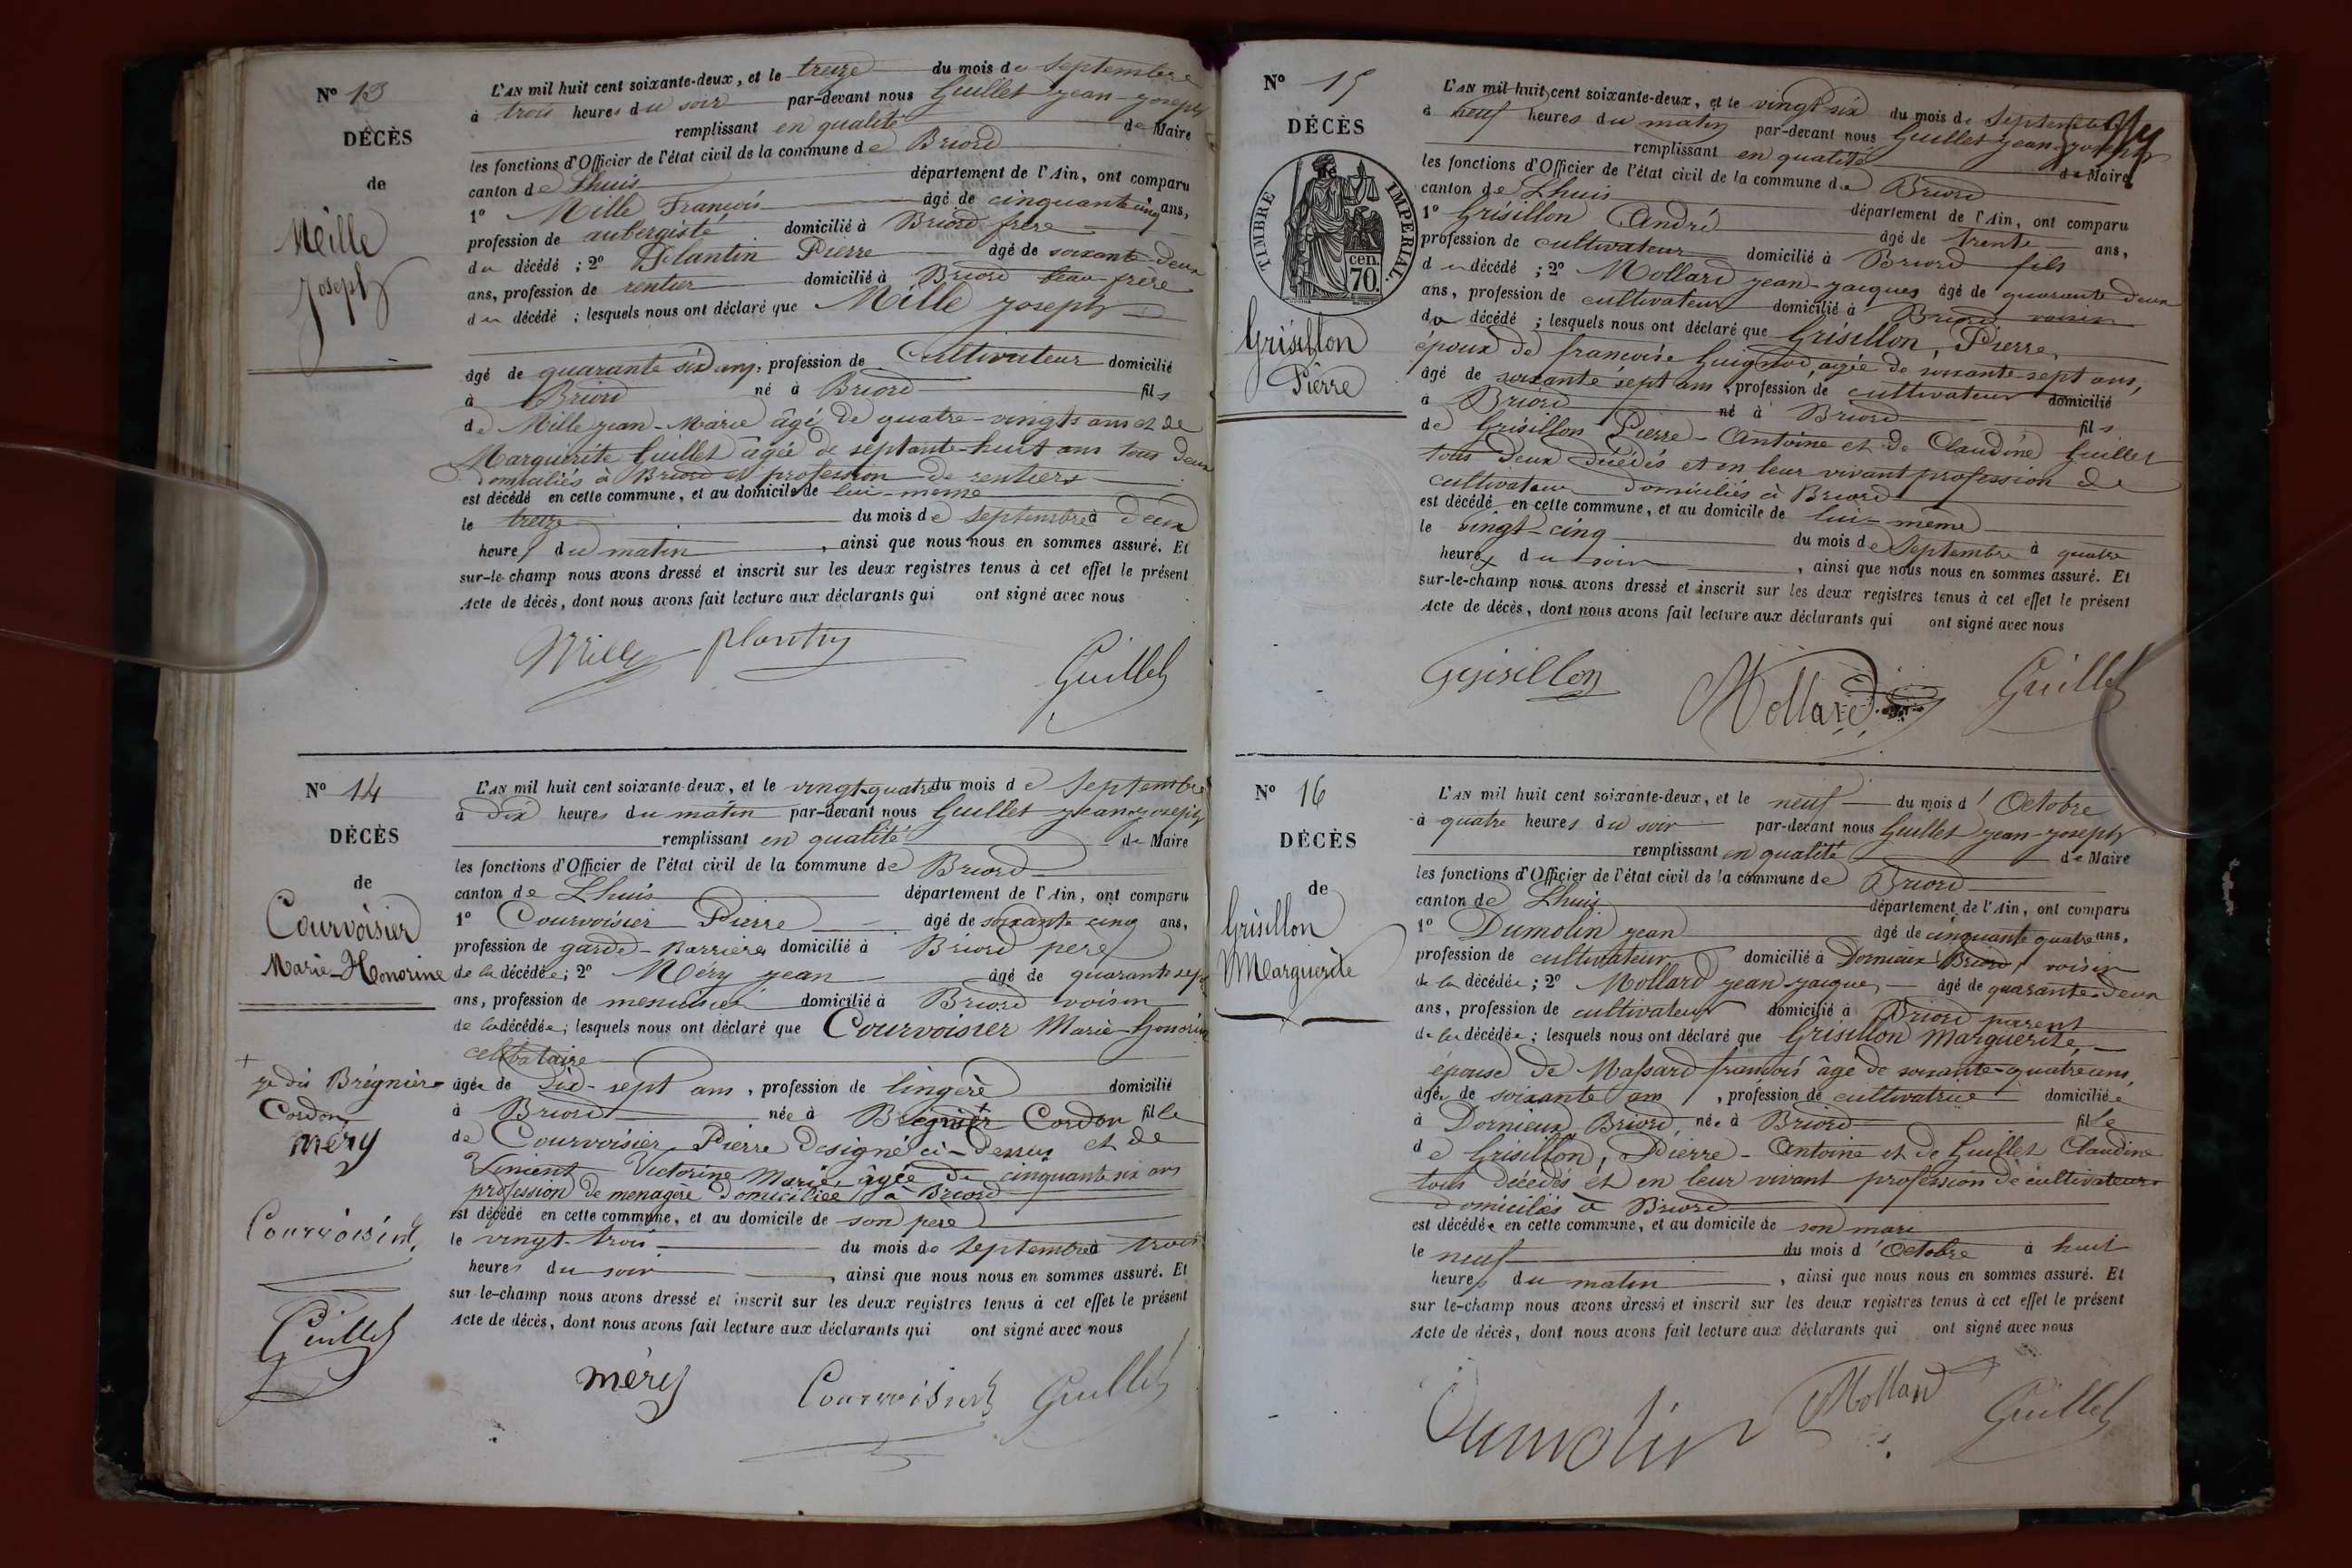 N° 13
DÉCÈS
de
Mille
Joseph
L'AN mil huit cent soixante-deux, et le treize du mois de Septembre
à trois heures du soir par-devant nous Guillet jean-joseph
remplissant en qualité de Maire
les fonctions d'Officier de l'état civil de la commune de Briord
canton de Lhuis département de l'Ain, ont comparu
1° Mille François âgé de cinquante cinq ans,
profession de aubergiste domicilié à Briord frère
du décédé ; 2° Plantin Pierre âgé de soixante-deux
ans, profession de rentier domicilié à Briord beau-frère
du décédé ; lesquels nous ont déclaré que Mille joseph
âgé de quarante six ans, profession de Cultivateur domicilié
à Briord né à Briord fils
de Mille jean-Marie âgé de quatre-vingts ans et de
Marguerite Guillet âgée de septante-huit ans tous deux
domiciliés à Briord et profession de rentiers
est décédé en cette commune, et au domicile de lui-même
le treize du mois de Septembre à deux
heures du matin, ainsi que nous nous en sommes assuré. Et
sur-le-champ nous avons dressé et inscrit sur les deux registres tenus à cet effet le présent
Acte de décès, dont nous avons fait lecture aux déclarants qui ont signé avec nous
Mille plantin Guillet
N° 14
DÉCÈS
de
Courvoisier
Marie-Honorine
L'AN mil huit cent soixante-deux, et le vingt-quatre du mois de Septembre
à dix heures du matin par-devant nous Guillet jean-joseph
remplissant en qualité de Maire
les fonctions d'Officier de l'état civil de la commune de Briord
canton de Lhuis département de l'Ain, ont comparu
1° Courvoisier Pierre âgé de soixante cinq ans,
profession de garde-barrière domicilié à Briord père
de la décédée ; 2° Méry jean âgé de quarante sept
ans, profession de menuisier domicilié à Briord voisin
de la décédée ; lesquels nous ont déclaré que Courvoisier Marie-Honorine
célibataire
âgée de dix-sept ans, profession de lingère domicilié
à Briord née à Brégnier Cordon fille
de Courvoisier Pierre désigné ci-dessus et de
Victorine Marie, âgée de cinquante six ans
profession de menagère domiciliée à Briord
est décédé en cette commune, et au domicile de son père
le vingt-trois du mois de Septembre à trois
heures du soir, ainsi que nous nous en sommes assuré. Et
sur-le-champ nous avons dressé et inscrit sur les deux registres tenus à cet effet le présent
Acte de décès, dont nous avons fait lecture aux déclarants qui ont signé avec nous
+ je dis Brégnier
Cordon
méry
Courvoisier
Guillet
méry Courvoisier Guillet
N° 15
DÉCÈS
TIMBRE IMPERIAL.
cen.
70.
Grisillon
Pierre
L'AN mil huit cent soixante-deux, et le vingt-six du mois de Septembre
à neuf heures du matin par-devant nous Guillet jean-joseph
remplissant en qualité de Maire
les fonctions d'Officier de l'état civil de la commune de Briord
canton de Lhuis département de l'Ain, ont comparu
1° Grisillon André âgé de trente ans,
profession de cultivateur domicilié à Briord fils
du décédé ; 2° Mollard jean-jacques âgé de quarante deux
ans, profession de cultivateur domicilié à Briord voisin
du décédé ; lesquels nous ont déclaré que Grisillon, Pierre,
époux de françoise Guignod, agée de soixante-sept ans,
âgé de soixante sept ans, profession de cultivateur domicilié
à Briord né à Briord fils
de Grisillon Pierre-Antoine et de Claudine Guillet
tous deux décédés et en leur vivant profession de
cultivateur domiciliés à Briord
est décédé en cette commune, et au domicile de lui-même
le vingt-cinq du mois de Septembre à quatre
heures du soir, ainsi que nous nous en sommes assuré. Et
sur-le-champ nous avons dressé et inscrit sur les deux registres tenus à cet effet le présent
Acte de décès, dont nous avons fait lecture aux déclarants qui ont signé avec nous
Grisillon Mollard Guillet
N° 16
DÉCÈS
de
Grisillon
Marguerite
L'AN mil huit cent soixante-deux, et le neuf du mois d'Octobre
à quatre heures du soir par-devant nous Guillet jean-joseph
remplissant en qualité de Maire
les fonctions d'Officier de l'état civil de la commune de Briord
canton de Lhuis département de l'Ain, ont comparu
1° Dumolin jean âgé de cinquante quatre ans,
profession de cultivateur domicilié à Dornieux Briord, voisin
de la décédée ; 2° Mollard jean-jacques âgé de quarante-deux
ans, profession de cultivateur domicilié à Briord parent
de la décédée ; lesquels nous ont déclaré que Grisillon Marguerite,
épouse de Massard françois âgé de soixante-quatre ans,
âgée de soixante ans, profession de cultivatrice domiciliée
à Dornieux, Briord, née à Briord fille
de Grisillon, Pierre-Antoine et de Guillet Claudine
tous décédés et en leur vivant profession de cultivateurs
domiciliés à Briord
est décédée en cette commune, et au domicile de son mari
le neuf du mois d'Octobre à huit
heures du matin, ainsi que nous nous en sommes assuré. Et
sur-le-champ nous avons dressé et inscrit sur les deux registres tenus à cet effet le présent
Acte de décès, dont nous avons fait lecture aux déclarants qui ont signé avec nous
Dumolin Mollard Guillet